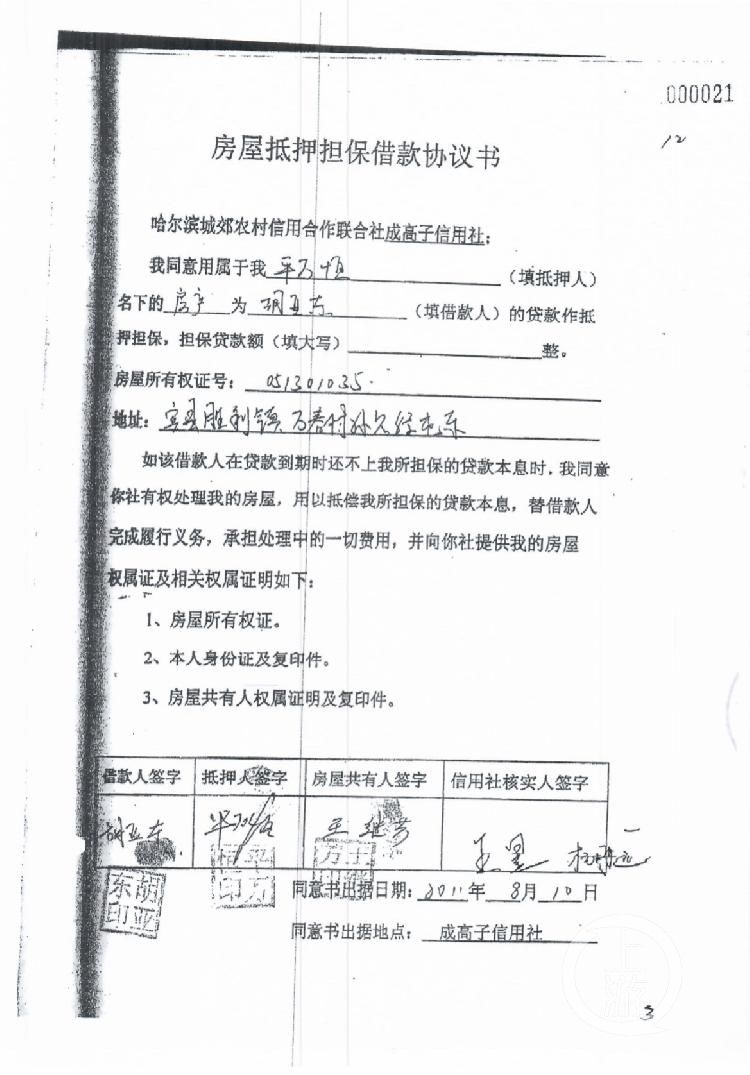 000021
12
房屋抵押担保借款协议书
哈尔滨城郊农村信用合作联合社成高子信用社:
我同意用属于我 平万恒 (填抵押人)
名下的 房产 为 胡亚东 (填借款人)的贷款作抵
押担保,担保贷款额(填大写) 整。
房屋所有权证号: 051301035.
地址: 宾县胜利镇万春村孙久经屯东
如该借款人在贷款到期时还不上我所担保的贷款本息时,我同意
你社有权处理我的房屋,用以抵偿我所担保的贷款本息,替借款人
完成履行义务,承担处理中的一切费用,并向你社提供我的房屋
权属证及相关权属证明如下:
1、房屋所有权证。
2、本人身份证及复印件。
3、房屋共有人权属证明及复印件。
借款人签字 抵押人签字 房屋共有人签字 信用社核实人签字
胡亚东 平万恒 王继芳 王星
胡亚东印 平万恒印
同意书出据日期: 2011年 8月 10日
同意书出据地点: 成高子信用社
上游
3